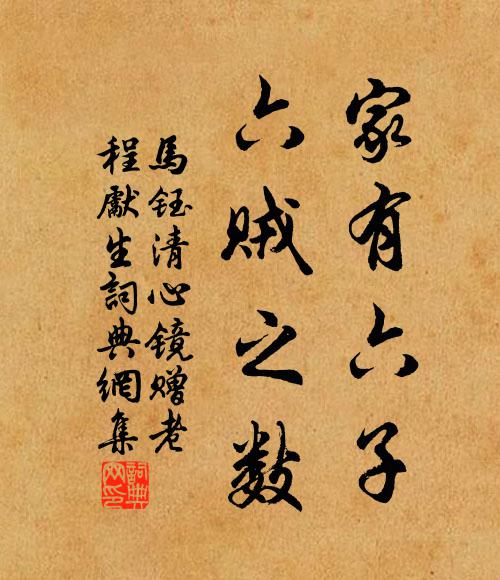 家有六子
六贼之数
馬鈺清心镜赠老
程獻生詞典網集
詞典网印